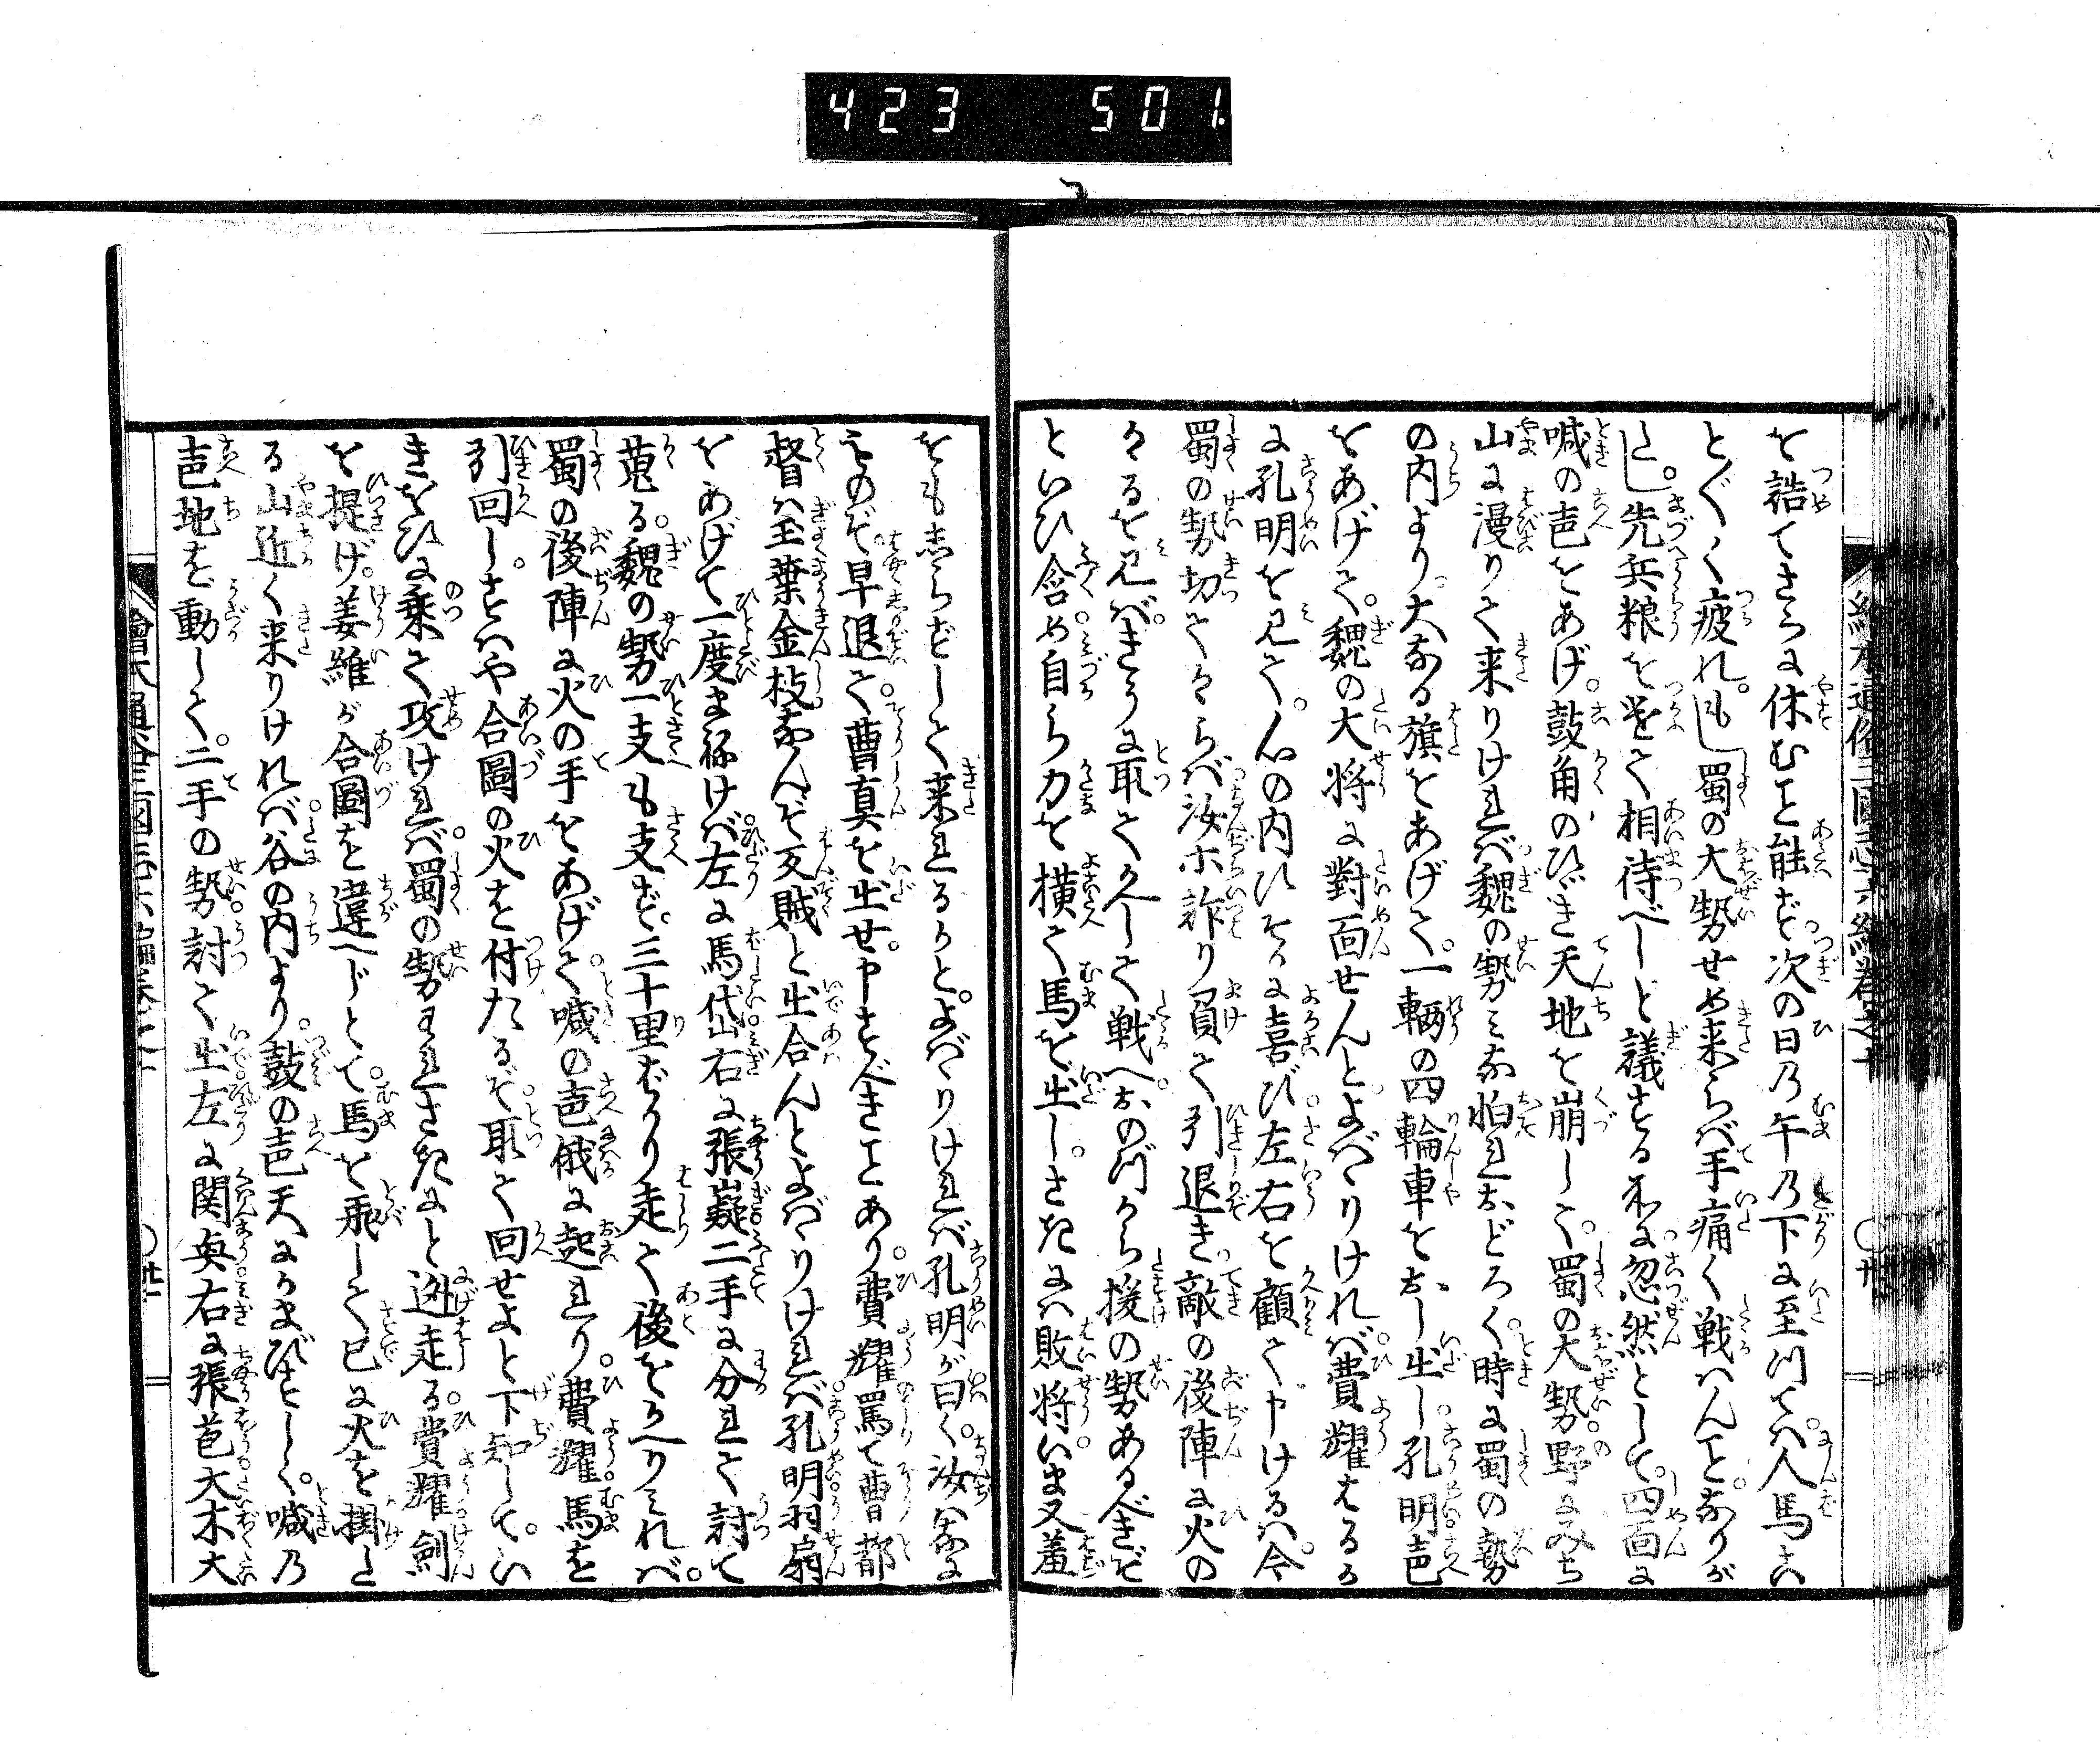 423 501
を誥てさらに休むこと能ず次の日乃午乃下に至つては人馬こと
〴〵く疲れもし蜀の大勢せめ来らば手痛く戦はんことなりが
たし先兵粮を遣て相待べしと議する所に忽然として四面に
喊の声をあげ鼓角のひゞき天地を崩して蜀の大勢野にみち
山に漫りて来りければ魏の勢みな怕れおどろく時に蜀の勢
の内より大なる旗をあげて一輌の四輪車をおし出し孔明声
をあげて魏の大将に對面せんとよばゝりければ費耀はるか
に孔明を見て心の内ひそかに喜び左右を顧て申けるは今
蜀の勢切てかゝらば汝等詐り負て引退き敵の後陣に火の
かゝるを見ばきうに取てかへして戦へおのづから援の勢あるべきぞ
といひ含め自ら力を横て馬を出しさきには敗将いま又羞
をもしらずして来れるかとよばゝりければ孔明が曰く汝は我に
ものぞ早退て曹真を出せ申すべきことあり費耀罵て曹都
督は玉葉金枝なんぞ反賊と出合んとよばゝりければ孔明羽扇
をあげて一度まねけば左に馬岱右に張嶷二手に分れて討て
蒐る魏の勢一支も支ず三十里ばかり走て後をかへりみれば
蜀の後陣に火の手をあげて喊の声俄に起れり費耀馬を
引回しすはや合圖の火を付たるぞ取て回せよと下知してい
きほひに乗て攻ければ蜀の勢われさきにと迯走る費耀剣
を提げ姜維が合圖を違へじとて馬を飛して已に火を掛た
る山近く来りければ谷の内より鼓の声天にかまびすしく喊乃
声地を動して二手の勢討て出左に関興右に張苞大木大